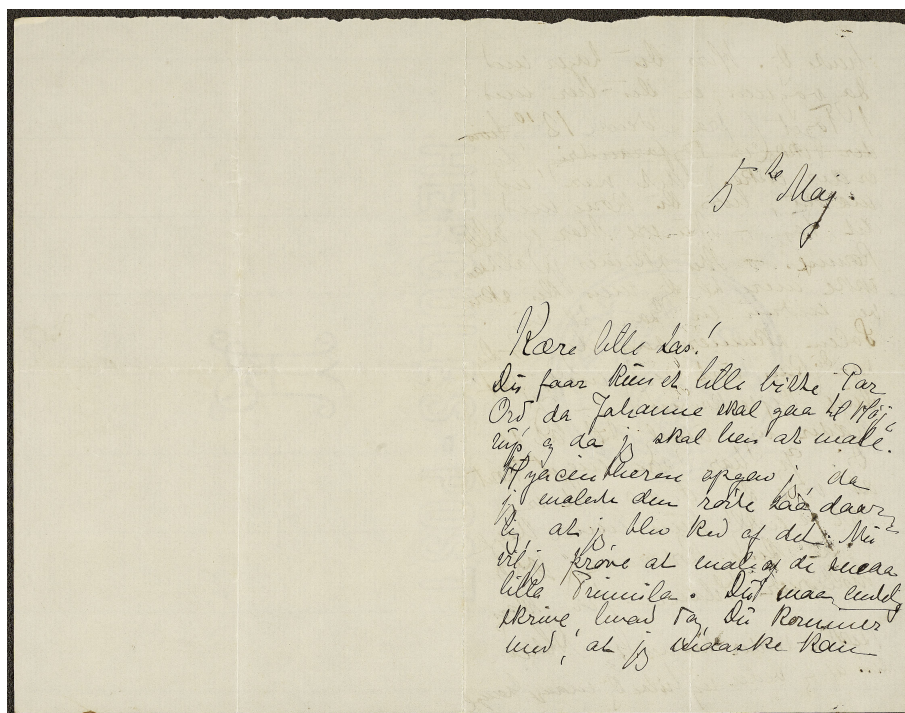 5te May.
Kære lille Las!
Du faar kun et lille bitte Par
Ord da Johanne skal gaa til Høj-
rup, og da jeg skal hen at male.
Hyacintheren opgav jeg, da
jeg malede den røde saa daar-
lig, at jeg blev ked af det. Nu
vil jeg prøve at male de smaa
lilla Primula. Du maa endelig
skrive, hvad Tog Du kommer
med, at jeg maaske kan